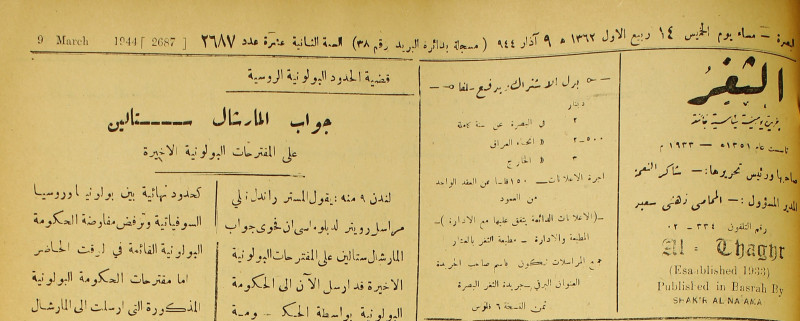 لبصرة – مساء يوم الخميس ١٤ ربيع الاول ١٣٦٢ ه ٩ آذار ٩٤٤ ( مسجلة بدائرة البريد رقم ٣٨ ) السنة الثانية عشرة عدد ٢٦٨٧
9 March 1944 [ 2687 ]
الثغر
جريدة يومية سياسية جامعة
تأسست عام ١٣٥١ه – ١٩٣٣ م
صاحبها ورئيس تحريرها :- شاكر النعمة
المدير المسؤول :- المحامي زهني سعير
رقم التلفون ٣٣٤ - ٠٢
Al - Thaghr
(Esaablished 1933)
Published in Basrah By
SHAKIR AL NA'AMA
بدل الاشتراك ويدفع سلفا
دينار
٢ في البصرة عن سنة كاملة
٢-٥٠٠ « انحاء العراق
٣ « الخارج
اجرة الاعلانات — ١٥٠ فلسا عن العقد الواحد
من العمود
–(الاعلانات الدائمة يتفق عليها مع الادارة )–
المطبعة والادارة – مطبعة الثغر بالعشار
جميع المراسلات تكون باسم صاحب الجريدة
العنوان البرقي – جريدة الثغر البصرة
ثمن النسخة ٦ فلوس
قضية الحدود البولونية الروسية
جواب المارشال ستالين
على المقترحات البولونية الاخيرة
لندن ٩ منه : يقول المستر راندل : لي
مراسل رويتر لدبلوماسي ان فحوى جواب
المارشال ستالين على المقترحات البولونية
الاخيرة قد ارسل الآن الى الحكومة
البولونية بواسطة الحكومة
كحدود نهائية بين بولونيا وروسيا
السوفياتية وترفض مفاوضة الحكومة
البولونية القائمة في لوقت الحاضر
اما مقترحات الحكومة البولونية
المذكورة التي ارسلت الى المارشال